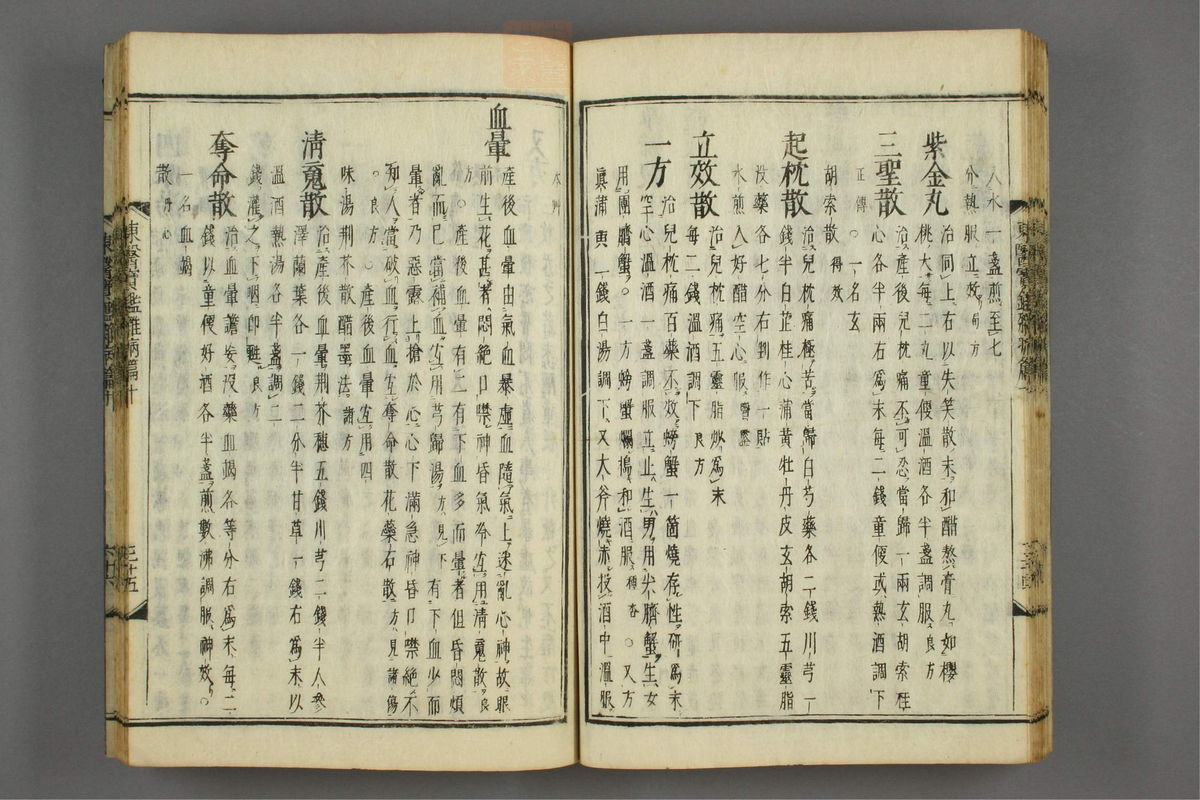 入水一盞煎至七
分熱服立效局方
紫金丸
治同上右以失笑散末和醋熬膏丸如櫻
桃大每二丸童便溫酒各半盞調服良方
三聖散
治産後兒枕痛不可忍當歸一兩玄胡索桂
心各半兩右爲末每二錢童便或熱酒調下
正傳○一名玄
胡索散得效
起枕散
治兒枕痛極苦當歸白芍藥各二錢川芎一
錢半白芷桂心蒲黃牡丹皮玄胡索五靈脂
沒藥各七分右剉作一貼
水煎入好醋空心服醫鑑
立效散
治兒枕痛五靈脂炒爲末
每二錢溫酒調下良方
一方
治兒枕痛百藥不效螃蟹一箇燒存性研爲末
空心溫酒一盞調服立止生男用尖臍蟹生女
用團臍蟹○一方螃蟹爛搗和酒服種杏○又方
眞蒲黃一錢白湯調下又大斧燒赤投酒中溫服
本草
血暈
産後血暈由氣血暴虛血隨氣上迷亂心神故眼
前生花甚者悶絶口噤神昏氣冷宜用清魂散良
方○産後血暈有二有下血多而暈者但昏悶煩
亂而已當補血宜用芎歸湯方見下有下血少而
暈者乃惡露上搶於心心下滿急神昏口噤絶不
知人當破血行血宜奪命散花藥石散方見諸傷
○良方○産後血暈宜用四
味湯荊芥散醋墨法諸方
清魂散
治産後血暈荊芥穗五錢川芎二錢半人參
澤蘭葉各一錢二分半甘草一錢右爲末以
溫酒熱湯各半盞調二
錢灌之下咽卽甦良方
奪命散
治血暈譫妄沒藥血竭各等分右爲末每二
錢以童便好酒各半盞煎數沸調服神效○
一名血竭
散丹心
東醫寶鑑雜病篇十
三十五